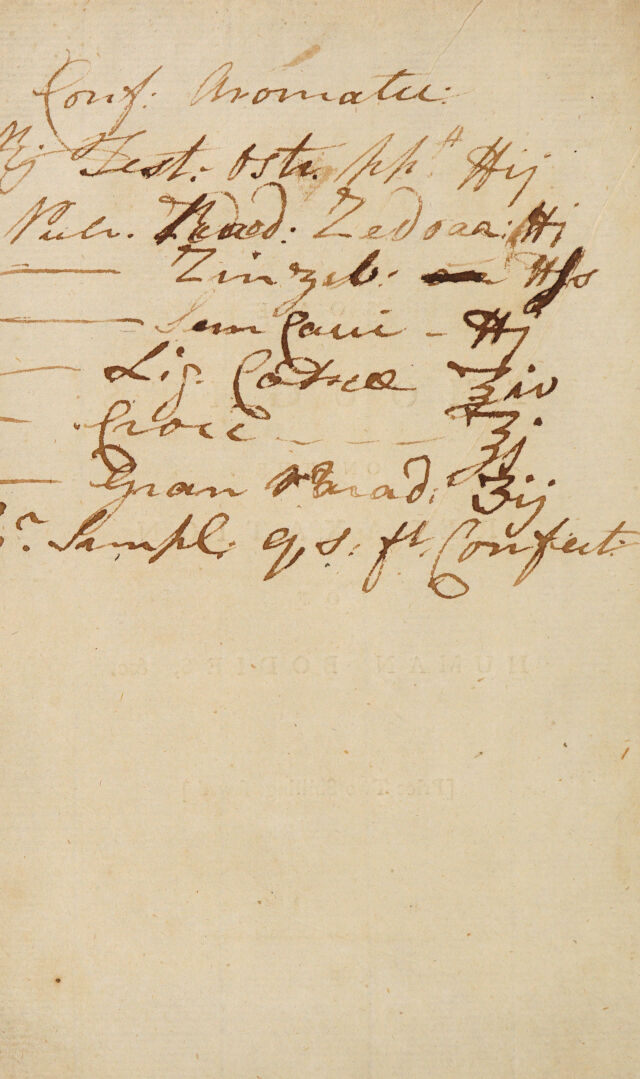 Conf: Aromatic:
Test: Ostr. ppt ℔ij
Pulv. Rad: Zedoaa: ℔j
—— Zinzeb: ℔ſs
—— Sem Carui – ℔j
—— Lig. Cassiæ ℥iv
— Croci – – – ℥j
— Gran Parad: ℥ij
Simpl. q, s. ft. Confect:
HUMAN BODIES, &c.